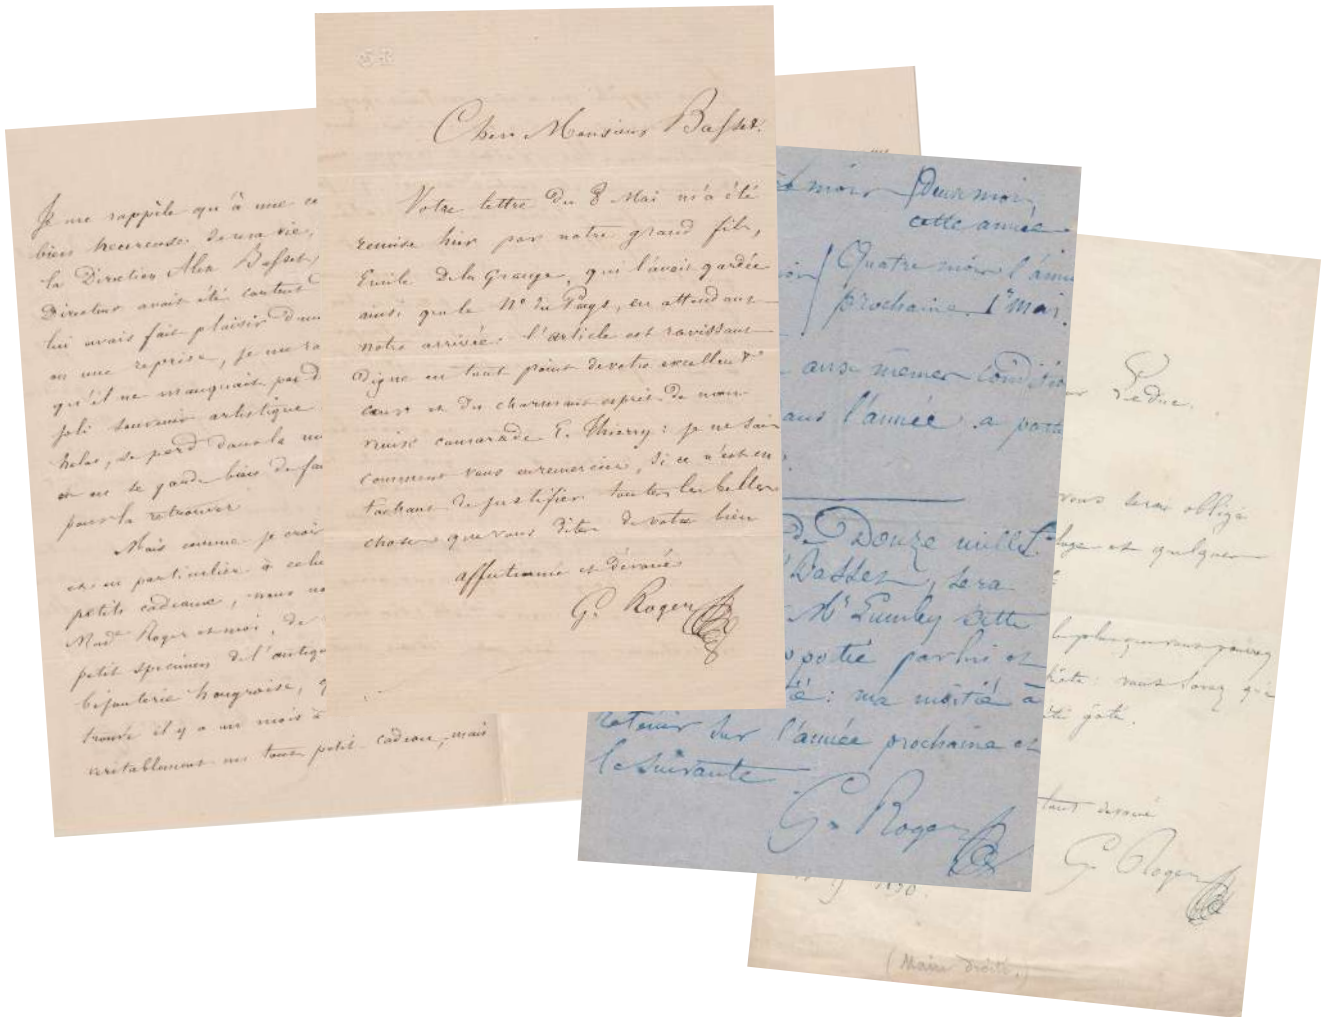 Je me rappèle qu'à une
bien heureuse de ma vie,
la Direction Alex Basset,
Directeur avait été content
lui avais fait plaisir dans
ou une reprise, je me
qu'il ne manquait pas
joli souvenir artistique
helas, se perd dans la
et on se garde bien de
pour la retrouver
Mais comme je crois
et en particulier à celui
petits cadeaux, nous
Made Roger et moi, de
petit specimen de l'antique
bijouterie hongroise,
trouvé il y a un mois à
veritablement un tout petit cadeau, mais
GR
Cher Monsieur Basset.
Votre lettre du 8 Mai m'a été
remise hier par notre grand fils,
Emile Delagrange, qui l'avait gardée
ainsi que le No du Pays, en attendant
notre arrivée. l'article est ravissant
Digne en tout point de votre excellent
cœur et du charmant esprit de mon
vieux camarade E. Thierry: je ne sais
comment vous en remercier, si ce n'est en
tachant de justifier toutes les belles
choses que vous dites de votre bien
affectionné et dévoué
G. Roger
mois Deux mois
cette année
Quatre mois l'année
prochaine. 1er mai.
aux mêmes conditions
l'année a partir
de Douze mille f.
Basset, sera
Mr Lumley cette
par lui et
: ma moitié à
retenir sur l'année prochaine et
la suivante
G. Roger
Leduc.
vous serais obligé
et quelques
le plus que vous pourrez
: vous savez que
été gâté.
tout dévoué
G. Roger
(Main droite.)